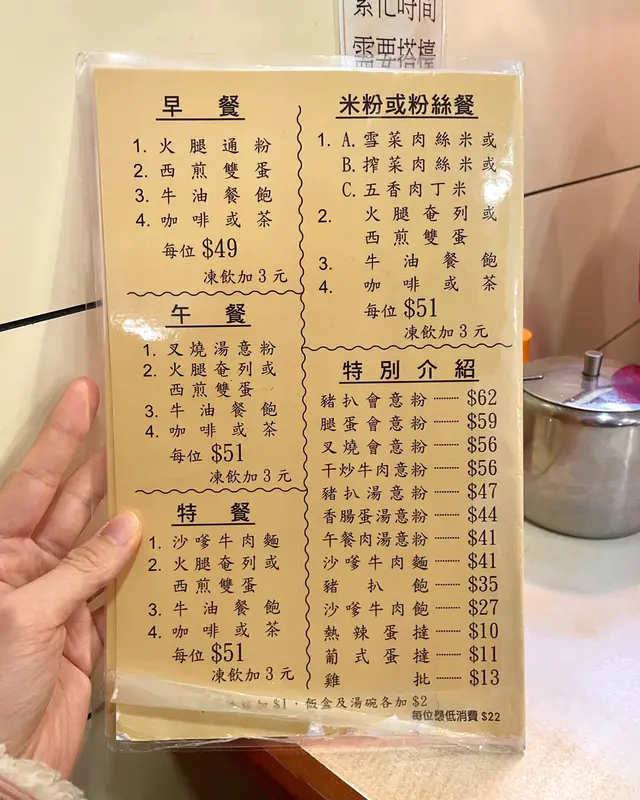 繁忙時間
需要搭檯
早餐
1. 火腿通粉
2. 西煎雙蛋
3. 牛油餐飽
4. 咖啡或茶
每位 $49
凍飲加3元
午餐
1. 叉燒湯意粉
2. 火腿奄列或
西煎雙蛋
3. 牛油餐飽
4. 咖啡或茶
每位 $51
凍飲加3元
特餐
1. 沙嗲牛肉麵
2. 火腿奄列或
西煎雙蛋
3. 牛油餐飽
4. 咖啡或茶
每位 $51
凍飲加3元
米粉或粉絲餐
1. A. 雪菜肉絲米或
B. 搾菜肉絲米或
C. 五香肉丁米
2. 火腿奄列或
西煎雙蛋
3. 牛油餐飽
4. 咖啡或茶
每位 $51
凍飲加3元
特別介紹
豬扒會意粉 $62
腿蛋會意粉 $59
叉燒會意粉 $56
干炒牛肉意粉 $56
豬扒湯意粉 $47
香腸蛋湯意粉 $44
午餐肉湯意粉 $41
沙嗲牛肉麵 $41
豬扒飽 $35
沙嗲牛肉飽 $27
熱辣蛋撻 $10
葡式蛋撻 $11
雞批 $13
加 $1，飯盒及湯碗各加 $2
每位最低消費 $22